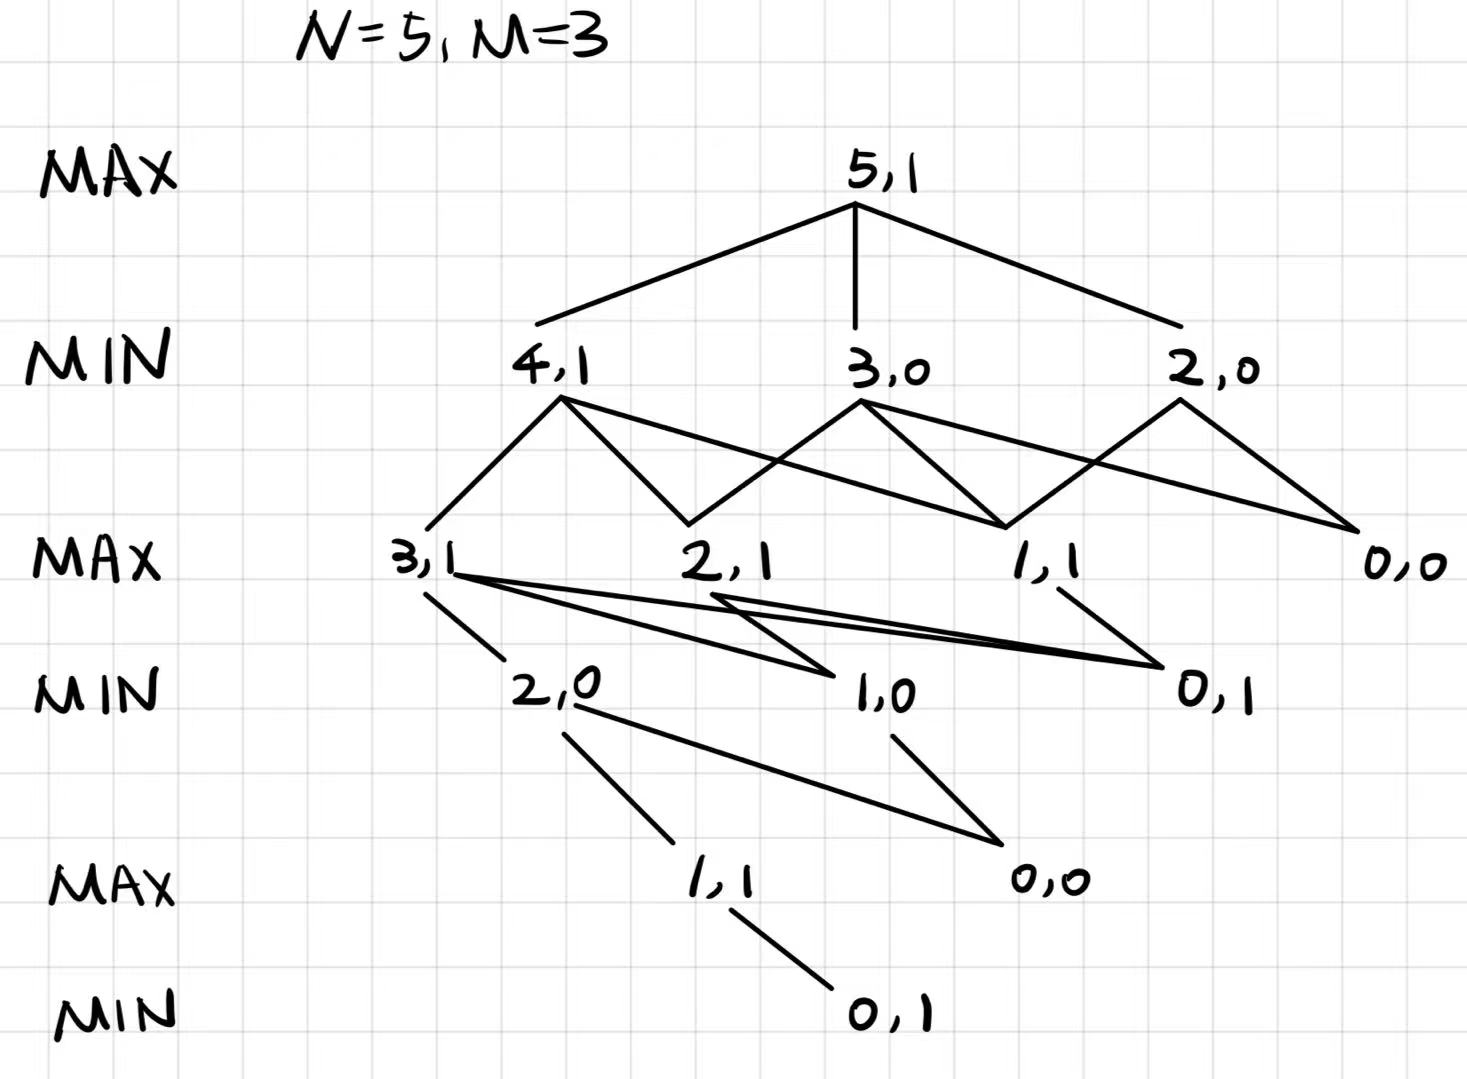 N=5, M=3
MAX 5,1
MIN 4,1 3,0 2,0
MAX 3,1 2,1 1,1 0,0
MIN 2,0 1,0 0,1
MAX 1,1 0,0
MIN 0,1